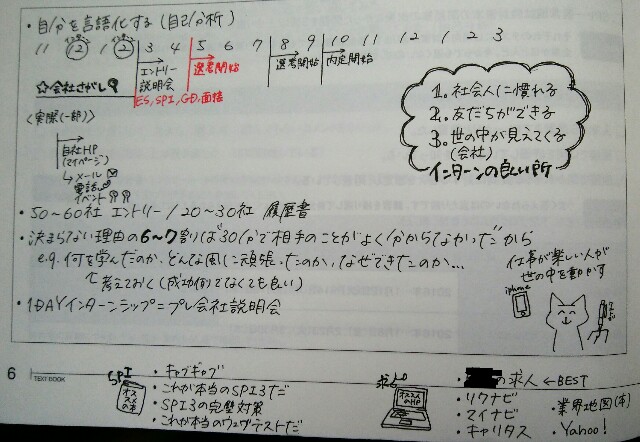 ・自分を言語化する(自己分析)
11 12 1 2 3 4 5 6 7 8 9 10 11 12 1 2 3
エントリー 説明会
選考開始
選考開始
内定開始
☆会社さがし
ES, SPI, GD, 面接
<実際(一部)>
自社HP
(マイページ)
↳メール
電話
イベント
1. 社会人に慣れる
2. 友だちができる
3. 世の中が見えてくる
(会社)
インターンの良い所
・50〜60社 エントリー / 20〜30社 履歴書
・決まらない理由の6〜7割りは"30分で相手のことがよく分からなかった"から
e.g. 何を学んだのか、どんな風に頑張ったのか、なぜできたのか…
↑考えておく(成功例でなくても良い)
・1DAYインターンシップ=プレ会社説明会
仕事が楽しい人が
世の中を動かす
iphone
6
TEXT-BOOK
SPI
オススメの本
・キャブギャブ
・これが本当のSPI3だ
・SPI3の完璧対策
・これが本当のウェブテストだ
求人
オススメのHP
の求人 ←BEST
・リクナビ
・マイナビ
・キャリタス
・業界地図(本)
・Yahoo!